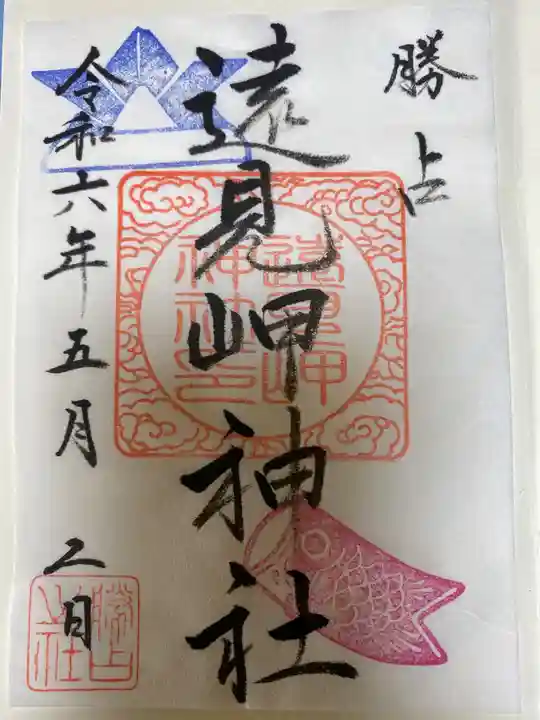 勝占
遠見岬神社
令和六年五月二日
遠見岬
神社印
勝占
神社